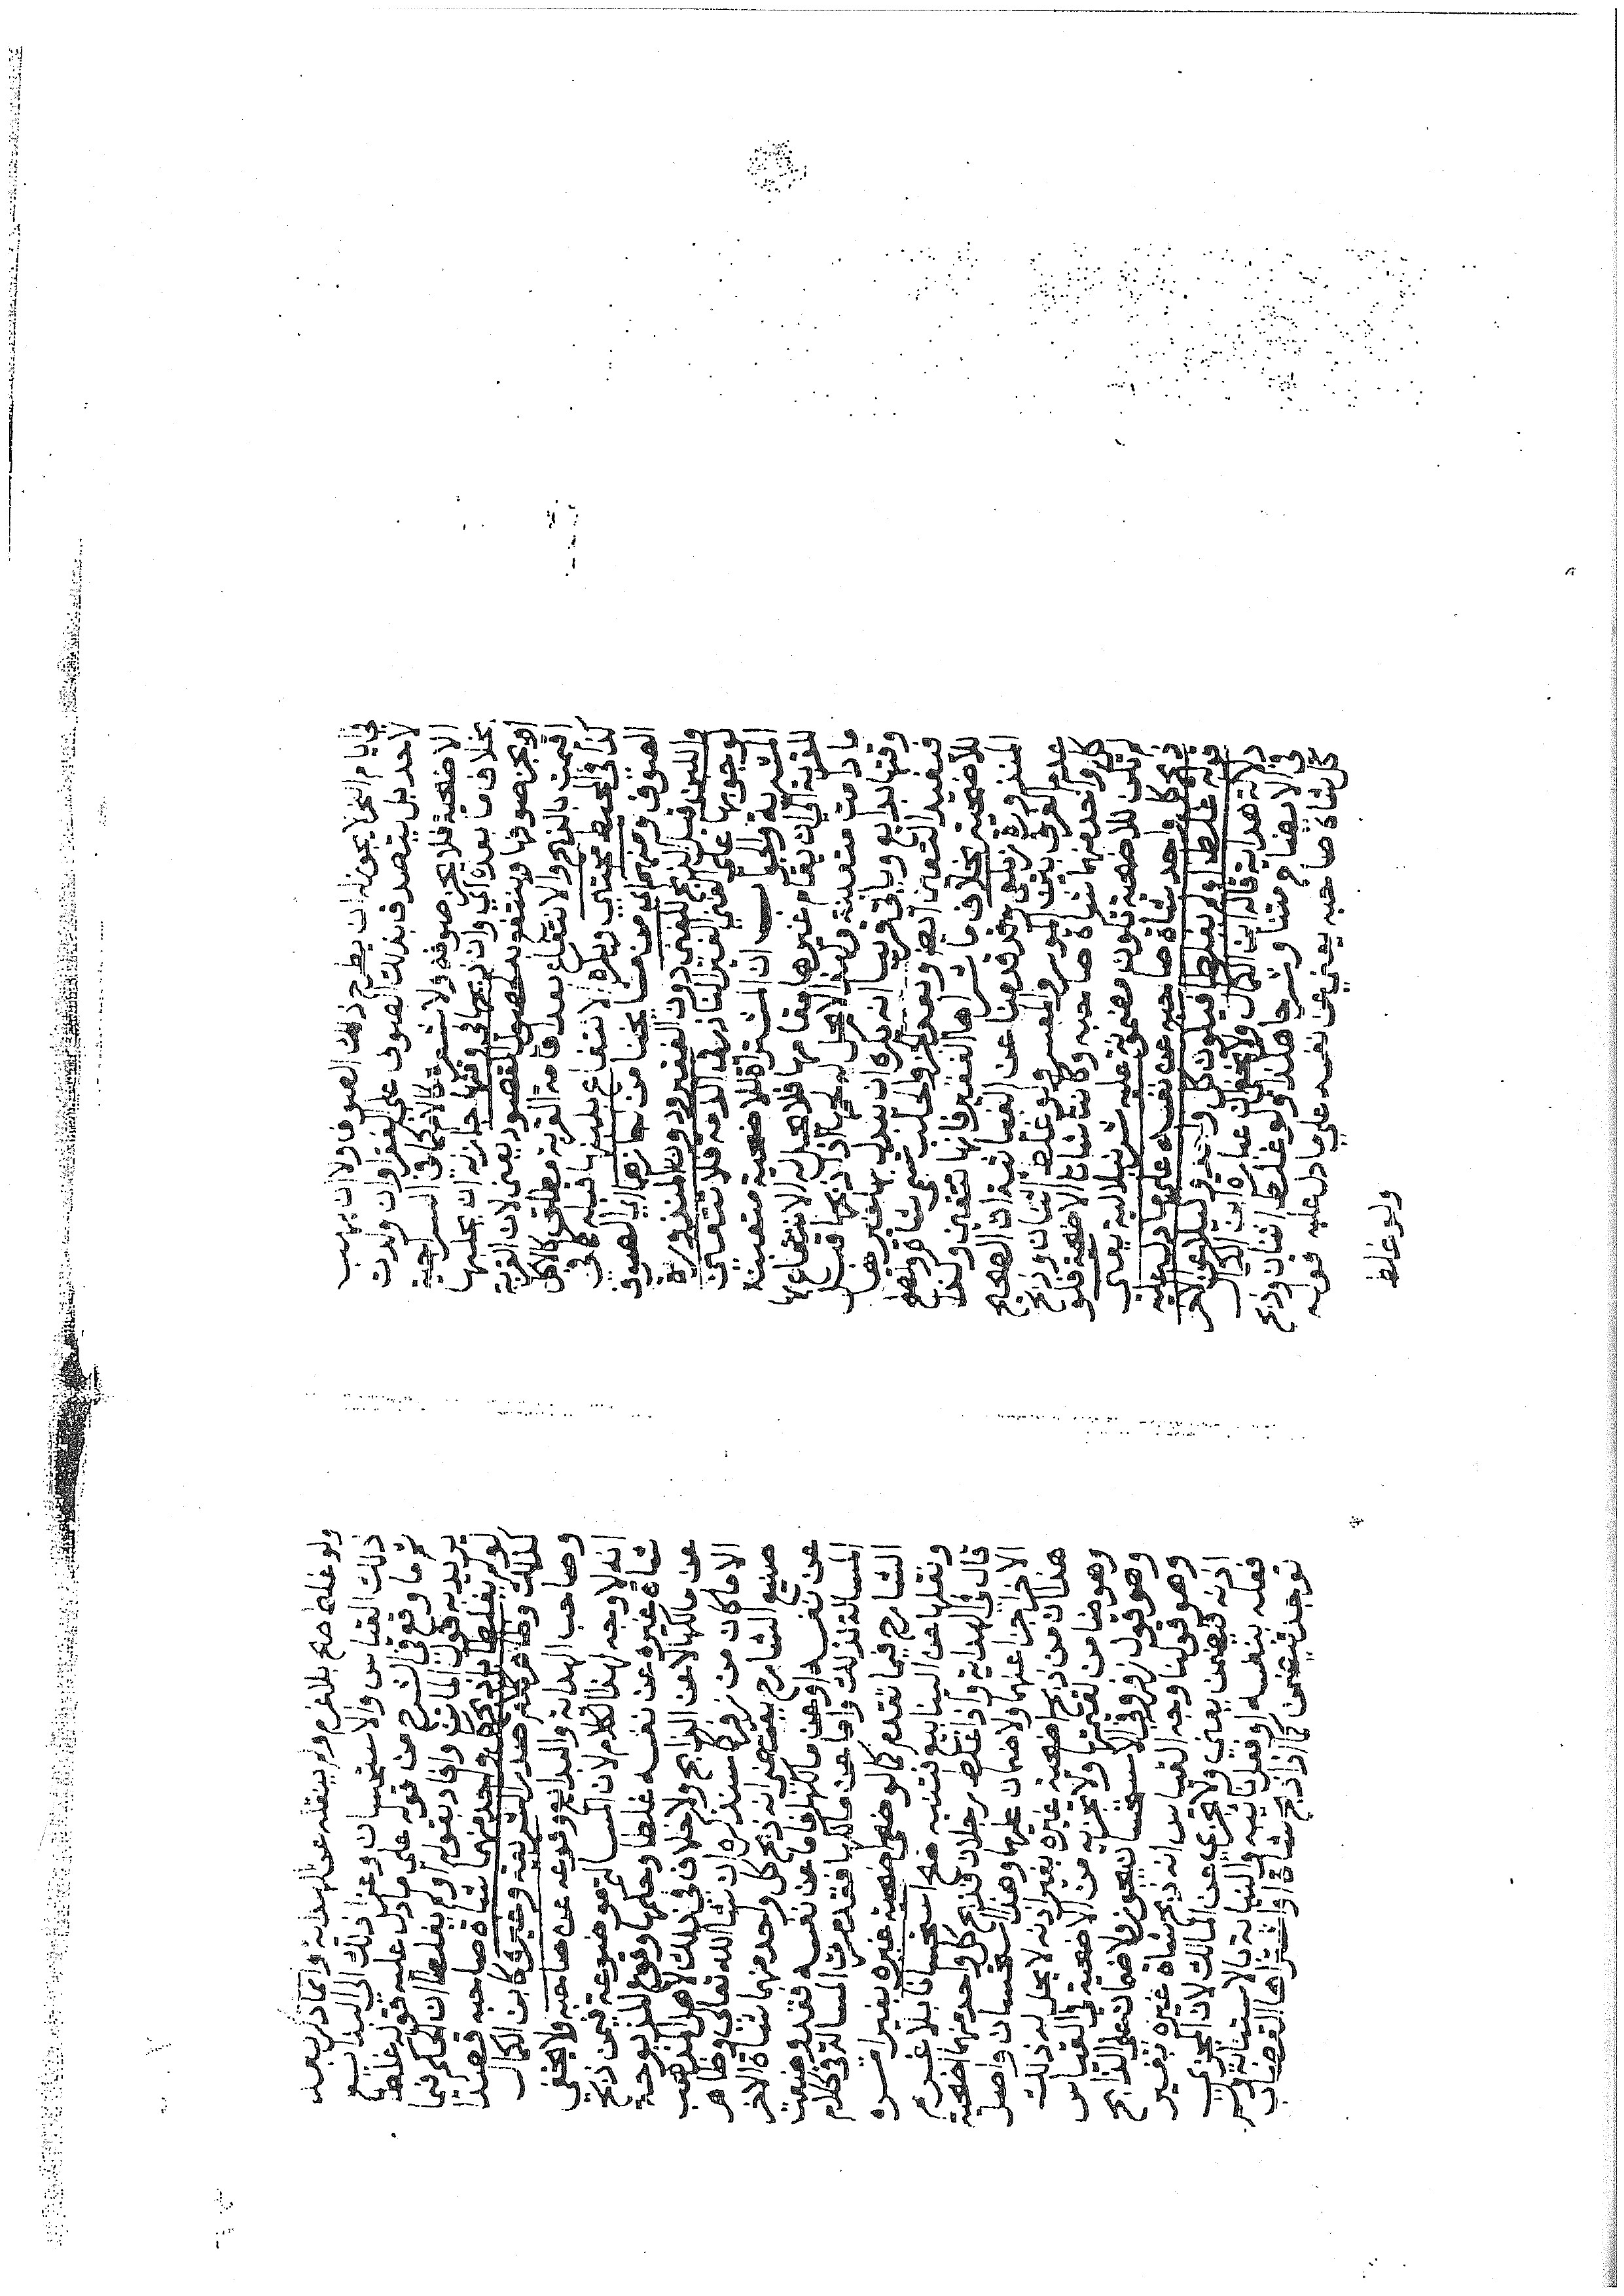 في ايام النحر لا يجوز له ان يطرح ذلك الصوف ولا ان يهب
لاحد بل يتصدق بذلك الصوف على الفقرا وان ولدت
الاضحية فلا يجز صوفه ولا شعره كالام كما في السراجية
بخلاف ما بعده اي وان ذبحها في وقتها جاز له ان يحلبها
او يجز صوفها وينتفع به لحصول المقصود يعني لان القربة
اقيمت بالذبح والانتفاع بعد اقامة القربة مطلق كالاكل
كذا في المحيط مجتبى ويكره الانتفاع بلبنها قبله كما في
الصوف ومنهم اي من مشايخنا من اجازهما اي الصوف
واللبن قبل الذبح للغني دون الفقير ودون المنذورة
لوجوبها على الغني الغير الناذر في الذمة فلا تتعين
المشرية والجواب ان المشتراة للاضحية متعينة
للقربة الى ان يقام غيرها مقامها فلا يحل له الانتفاع بها
ما دامت متعينة ولهذا لا يحل له لحمها اذا ذبحها قبل
وقتها بدايع وياتي قريبا انه يكره ان يبدل بها غيرها
فيفيد التعين ايضا وبعدم الجز والحلب حتى شاة وتصح
للاضحية بخلاف ما شراها الفقير فانها تتعين ولذا
المنذورة زيلعي وقد قدمنا عن النهاية ان الصحيح
عدم الفرق بين الموسر والمعسر ولو غلط اثنان وذبح
كل واحد منهما شاة صاحبه وكانت شاتا الاضحية فلو
لم تكن للاضحية تكون مضمونة عليه شرنبلالية يعني
ذبح كل واحد شاة صاحبه عن نفسه على ما دل عليه
قوله غلط ولم يغلط فيكون كل واحد
دلالة هداية قاله ابن الكمال ولا يخفى ان عبارة ابن الكمال
في الايضاح متنا وشرحا هكذا ولو غلط اثنان وذبح
كل شاة صاحبه يعني عن نفسه على ما دل عليه قوله
ولو غلط
ولو غلط صح بلا غرم ولم ينقله عن الهداية وانما ذكر بعد
ذلك القياس والاستحسان وعزا ذلك الى البدايع
ثم ما وقع في الشرح من قوله على ما دل عليه قوله غلط
يريد به قول الماتن وافاد بقوله او لم يغلطا ان الحكم فيما
لو لم يغلطا بل ذبح كل واحد منهما شاة صاحبه قصدا
كذلك وظاهر كلام صدر الشريعة وغيره كابن الكمال
وصاحب الهداية والبدايع وقوعه عن صاحبه ولا يخفى
انه لا وجه لهذا الكلام لان المسالة موضوعة فيمن ذبح
شاة غيره عن نفسه غلطا وحكمها وقوع المذبوحة
عن مالكها لا عن الذابح ولا خلاف في ذلك لاهل المذهب
الا ما كان من زفر كما سنذكره ان شاالله تعالى وظاهر
صنيع الشارح يقتضي انه ذبح كل واحد منهما شاة الاخر
عن نفسه او عن مالكها فاما عن نفسه فقد وضعت
المسالة لذلك واما عن مالكها فقد مرت المسالة في كلام
الشارح فيما تقدم كما لو ضحى اضحية غيره بغير امره
ونقلها عن الينابيع فتنبه صح استحسانا بلا غرم
قال في الهداية واذا غلط رجلان فذبح كل واحد منهما اضحية
الاخر اجزا عنهما ولا ضمان عليهما وهذا استحسان واصل
هذا ان من ذبح اضحية غيره بغير اذنه لا يحل له ذلك
وهو ضامن لقيمتها ولا تجزيه من الاضحية في القياس
وهو قول زفر وفي الاستحسان يجوز ولا ضمان على الذابح
وهو قولنا وجه القياس انه ذبح شاة غيره بغير
اذنه فيضمن يعني ولا تجزي عن المالك لان المجزي
فعله بنفسه او فعل نايبه والنيابة بالاستنابة ولم
توجد فيضمن كما اذا ذبح شاة اشتراها القصاب